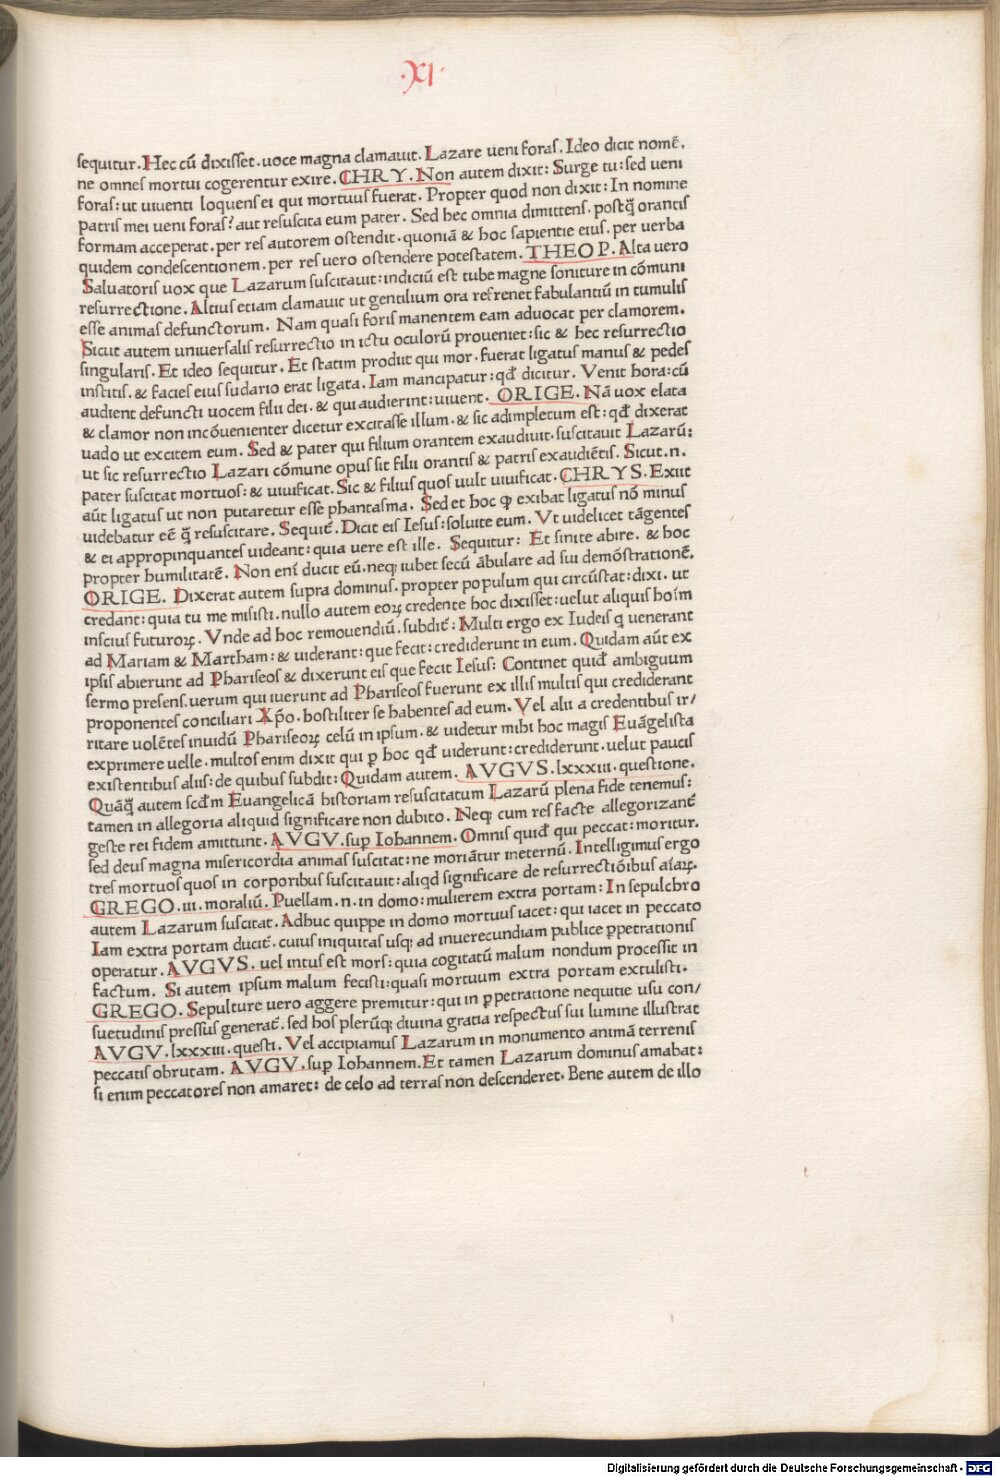 ·XI·
sequitur. Hec cū dixisset. uoce magna clamauit. Lazare ueni foras. Ideo dicit nomē.
ne omnes mortui cogerentur exire. CHRY. Non autem dixit: Surge tu: sed ueni
foras: ut uiuenti loquens ei qui mortuus fuerat. Propter quod non dixit: In nomine
patris mei ueni foras? aut resuscita eum pater. Sed hec omnia dimittens. postq̄ orantis
formam acceperat. per res autorem ostendit. quoniā & hoc sapientie eius. per uerba
quidem condescentionem. per res uero ostendere potestatem. THEOP. Alta uero
Saluatoris uox que Lazarum suscitauit: indiciū est tube magne soniture in cōmuni
resurrectione. Altius etiam clamauit ut gentilium ora refrenet fabulantiū in tumulis
esse animas defunctorum. Nam quasi foris manentem eam aduocat per clamorem.
Sicut autem uniuersalis resurrectio in ictu oculorū proueniet: sic & hec resurrectio
singularis. Et ideo sequitur. Et statim produit qui mor. fuerat ligatus manus & pedes
institis. & facies eius sudario erat ligata. Iam mancipatur: qd̄ dicitur. Venit hora: cū
audient defuncti uocem filii dei. & qui audierint: uiuent. ORIGE. Nā uox elata
& clamor non incōuenienter dicetur excitasse illum. & sic adimpletum est: qd̄ dixerat
uado ut excitem eum. Sed & pater qui filium orantem exaudiuit. suscitauit Lazarū:
ut sic resurrectio Lazari cōmune opus sit filii orantis & patris exaudiētis. Sicut .n.
pater suscitat mortuos: & uiuificat. Sic & filius quos uult uiuificat. CHRYS. Exiit
aūt ligatus ut non putaretur esse phantasma. Sed et hoc ꝙ exibat ligatus nō minus
uidebatur eē q̄ resuscitare. Sequit̄. Dicit eis Iesus: soluite eum. Vt uidelicet tāgentes
& ei appropinquantes uideant: quia uere est ille. Sequitur: Et sinite abire. & hoc
propter humilitatē. Non eni ducit eū. neqꝫ iubet secū ābulare ad sui demōstrationē.
ORIGE. Dixerat autem supra dominus. propter populum qui circūstat: dixi. ut
credant: quia tu me misisti. nullo autem eoꝝ credente hoc dixisset: uelut aliquis hoīm
inscius futuroꝝ. Vnde ad hoc remouendiū. subdit̄: Multi ergo ex Iudeis q uenerant
ad Mariam & Martham: & uiderant: que fecit: crediderunt in eum. Quidam aūt ex
ipsis abierunt ad Phariseos & dixerunt eis que fecit Iesus: Continet quid̄ ambiguum
sermo presens. uerum qui iuerunt ad Phariseos fuerunt ex illis multis qui crediderant
proponentes conciliari Xp̄o. hostiliter se habentes ad eum. Vel alii a credentibus ir/
ritare uolētes inuidū Phariseoꝝ celū in ipsum. & uidetur mihi hoc magis Euāgelista
exprimere uelle. multos enim dixit qui ꝑ hoc qd̄ uiderunt: crediderunt. uelut paucis
existentibus aliis: de quibus subdit: Quidam autem. AVGVS. lxxxiii. questione.
Quāq̄ autem scd̄m Euangelicā historiam resuscitatum Lazarū plena fide tenemus:
tamen in allegoria aliquid significare non dubito. Neqꝫ cum res facte allegorizant̄
geste rei fidem amittunt. AVGV. sup̄ Iohannem. Omnis quid̄ qui peccat: moritur.
sed deus magna misericordia animas suscitat: ne moriātur ineternū. Intelligimus ergo
tres mortuos quos in corporibus suscitauit: aliqd significare de resurrectiōibus aīaꝝ.
GREGO. iii. moraliū. Puellam .n. in domo: mulierem extra portam: In sepulchro
autem Lazarum suscitat. Adhuc quippe in domo mortuus iacet: qui iacet in peccato
Iam extra portam ducit̄. cuius iniquitas usqꝫ ad inuerecundiam publice ꝑpetrationis
operatur. AVGVS. uel intus est mors: quia cogitatū malum nondum processit in
factum. Si autem ipsum malum fecisti: quasi mortuum extra portam extulisti.
GREGO. Sepulture uero aggere premitur: qui in ꝑpetratione nequitie usu con/
suetudinis pressus generat̄. sed hos plerūqꝫ diuina gratia respectus sui lumine illustrat
AVGV. lxxxiii. questi. Vel accipiamus Lazarum in monumento animā terrenis
peccatis obrutam. AVGV. sup̄ Iohannem. Et tamen Lazarum dominus amabat:
si enim peccatores non amaret: de celo ad terras non descenderet. Bene autem de illo
Digitalisierung gefördert durch die Deutsche Forschungsgemeinschaft - DFG